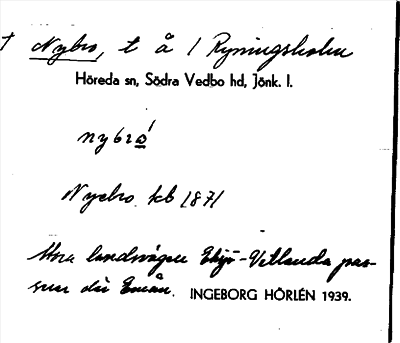 † Nybro, t å 1 Ryningsholm
Höreda sn, Södra Vedbo hd, Jönk. l.
nybro̲´
Nyebro kb 1871
Stora landsvägen Eksjö-Vetlanda pas-
serar där Emån. INGEBORG HÖRLÉN 1939.